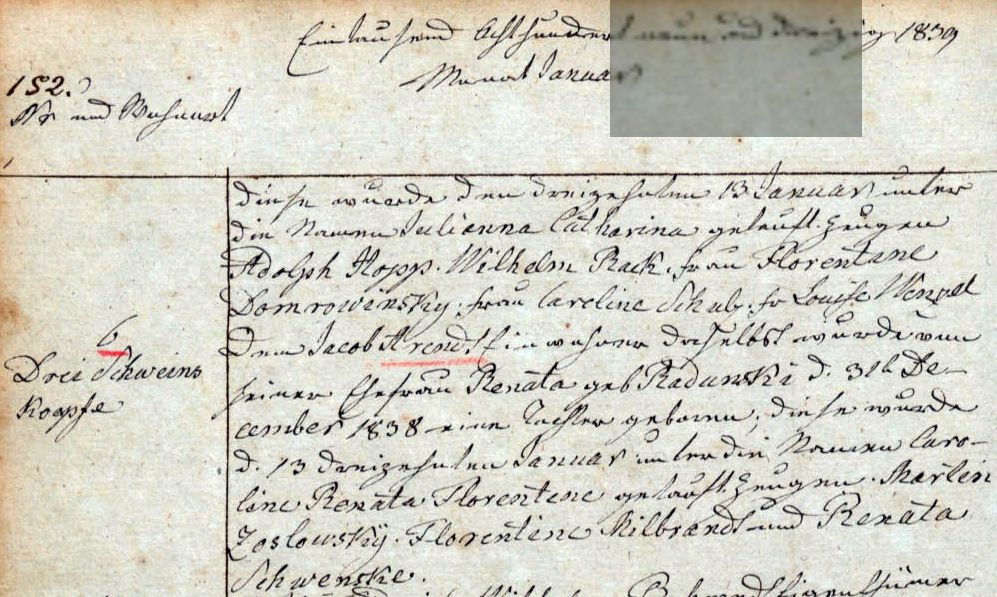 Eintausend Achthundert neun und dreizig 1839
Monat Januar
152.
Nr und Wohnort
diese wurde den dreizehnten 13 Januar unter
die Namen Julianna Catharina getauft. Zeugen
Adolph Hopp. Wilhelm Rack. frau Florentine
Domrowinsky. frau Careline Schulz. fr Louise Wenzel
6
Dem Jacob Arendt Einwohner daselbst wurde von
Drei Schweins
Koepfe
seiner Ehefrau Renata geb Radunski d. 31t De-
cember 1838 eine Tochter geboren, diese wurde
d. 13 dreizehnten Januar unter die Namen Caro-
line Renata Florentene getauft. Zeugen. Martin
Zoslowsky. Florentine Milbrandt und Renata
Schwenske.